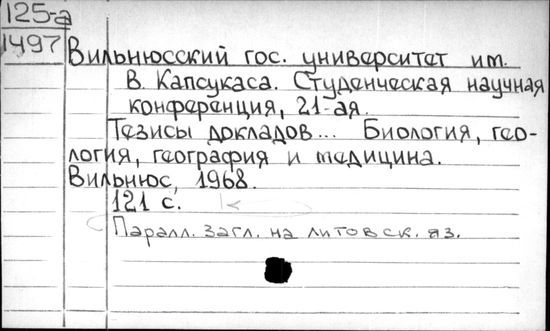 125-а
1497
Вильнюсский гос. университет им.
В. Капсукаса. Студенческая научная
конференция, 21-ая.
Тезисы докладов... Биология, гео-
логия, география и медицина.
Вильнюс, 1968.
121 с.
Паралл. загл. на литовск. яз.